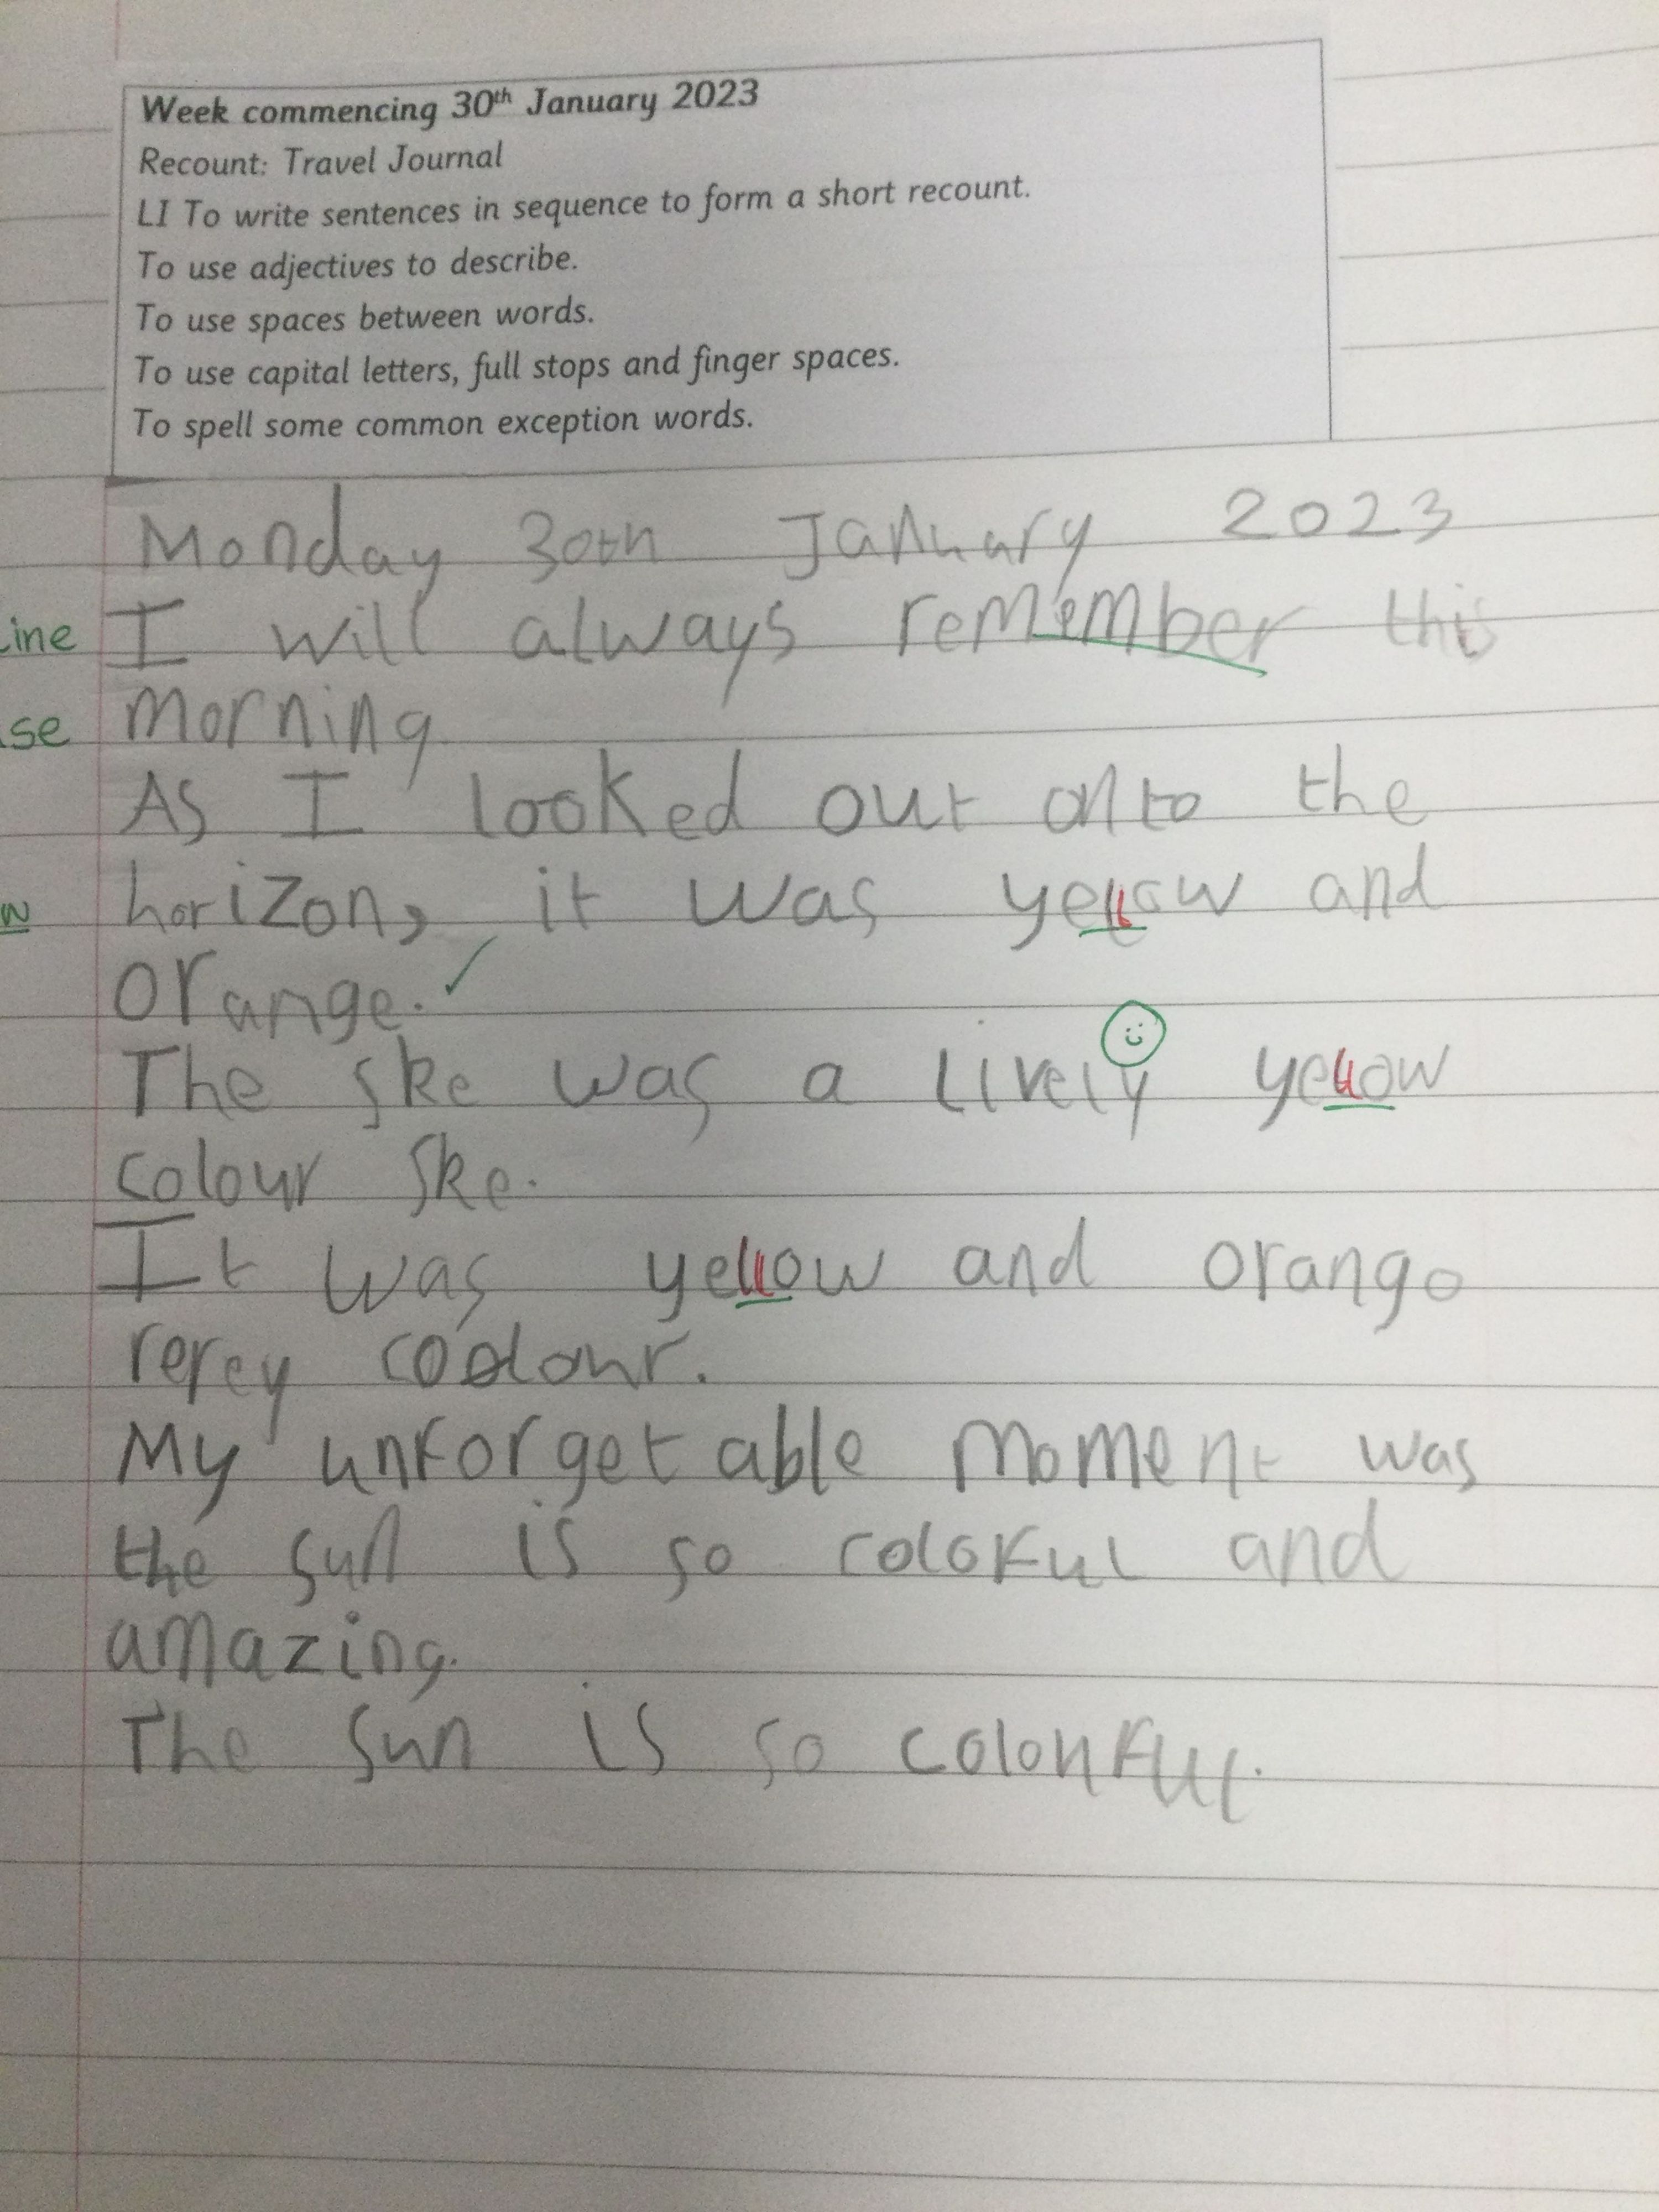 Week commencing 30th January 2023
Recount: Travel Journal
LI To write sentences in sequence to form a short recount.
To use adjectives to describe.
To use spaces between words.
To use capital letters, full stops and finger spaces.
To spell some common exception words.
Monday 30th January 2023
ine I will always remember this
se morning
As I looked out onto the
w horizon, it was yellow and
orange.
The ske was a lively yellow
colour ske.
It was yellow and orange
colour.
My unforgetable moment was
the sun is so coloful and
amazing.
The sun is so colourful.